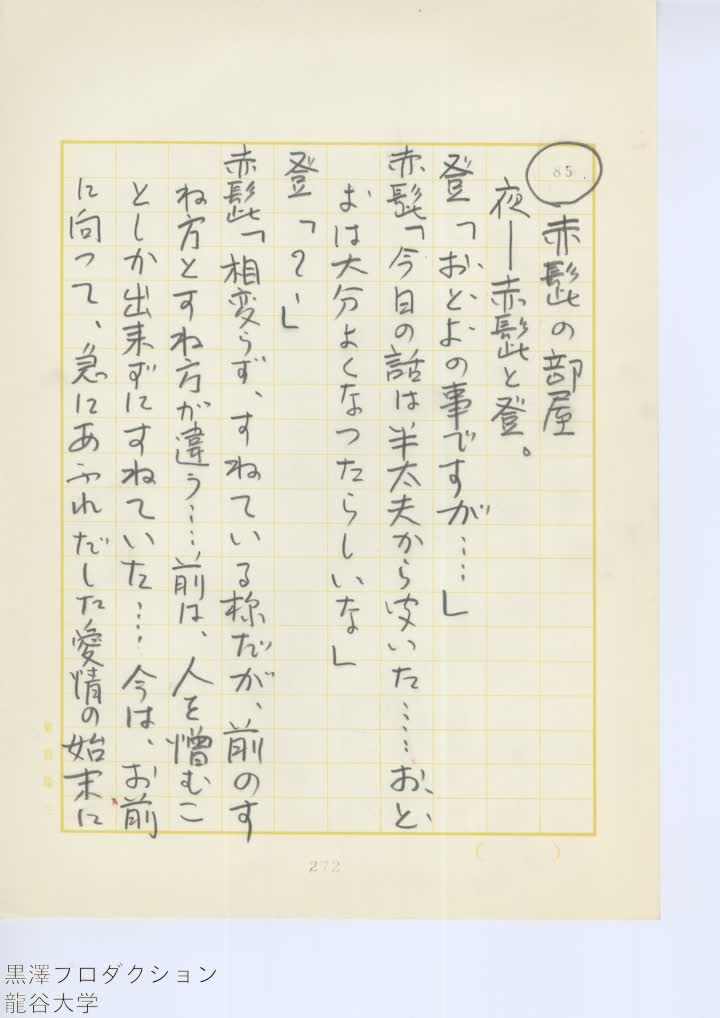 85
赤髭の部屋
夜―赤髭と登。
登「おとよの事ですが……」
赤髭「今日の話は半太夫から聞いた……おと
よは大分よくなつたらしいな」
登「?、」
赤髭「相変らず、すねている様だが、前のす
ね方とすね方が違う……前は、人を憎むこ
としか出来ずにすねていた……今は、お前
に向つて、急にあふれだした愛情の始末に
272
黒澤プロダクション
龍谷大学